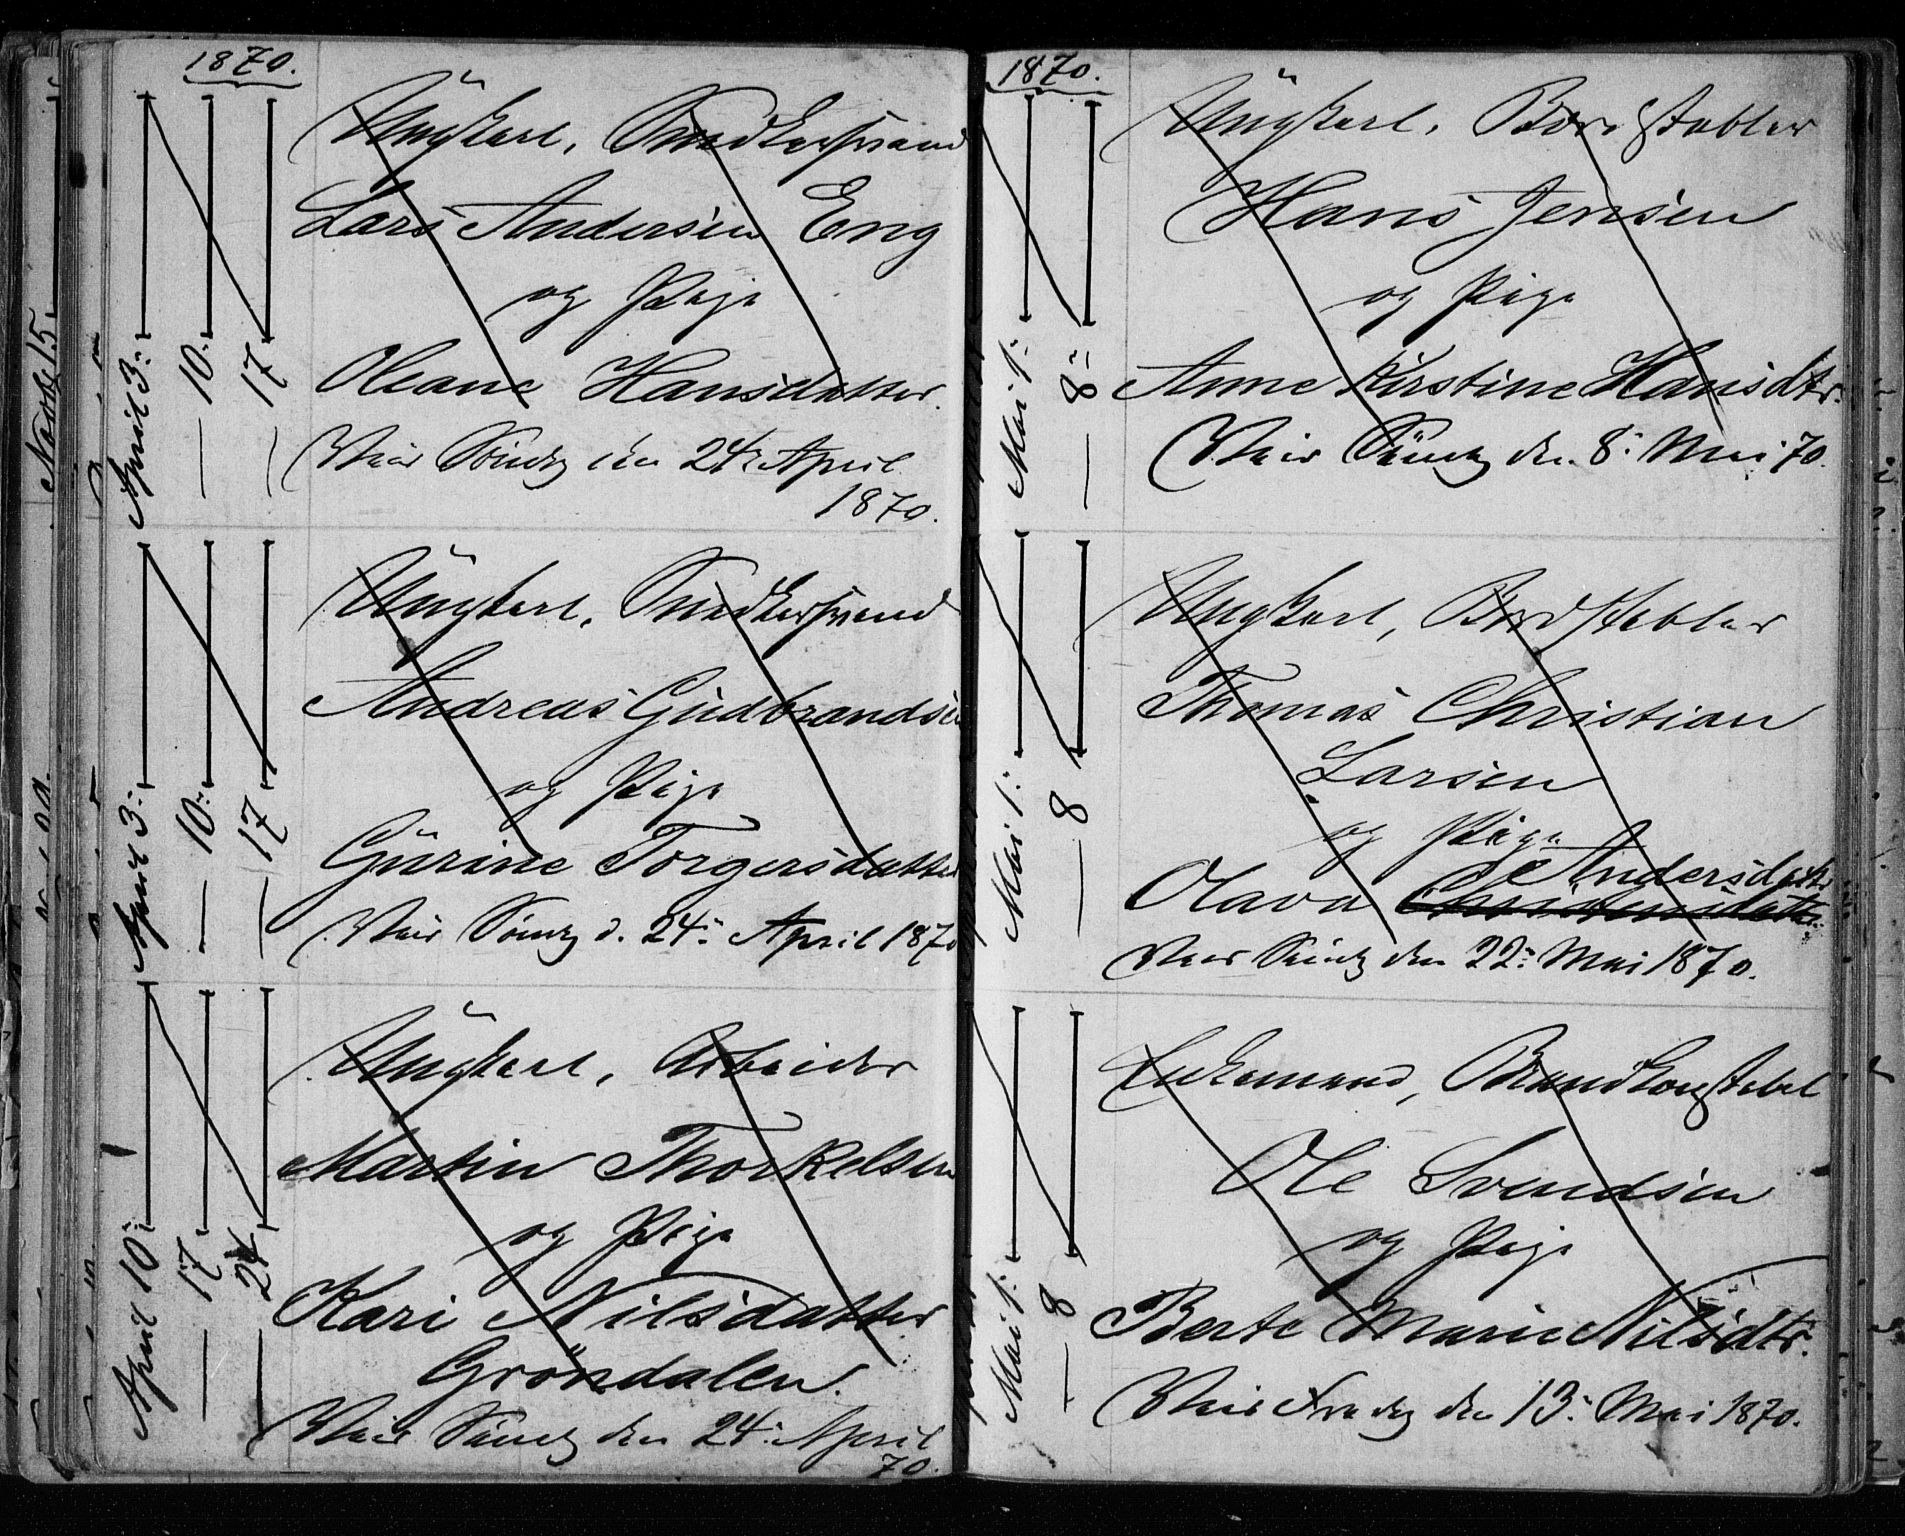 1870.
April 3:
— 10:
— 17
Ungkarl, Snedkersvend
Lars Andersen Eng
og Pige
Oleane Hansdatter.
Viet Søndg den 24: April
1870.
April 3:
— 10:
— 17
Ungkarl, Snedkersvend
Andreas Gudbrandsen
og Pige
Gurine Torgersdatter
Viet Søndg d. 24: April 1870
April 10:
— 17
— 24
Ungkarl, Arbeider
Martin Thorkelsen
og Pige
Kari Nilsdatter
Gröndalen.
Viet Søndg den 24: April
70.
1870.
Mai 1:
— 8:
Ungkarl, Bordstabler
Hans Jensen
og Pige
Anne Kirstine Hansdtr.
Viet Søndg den 8: Mai 70.
Mai 1:
— 8
Ungkarl, Bordstabler
Thomas Christian
Larsen
og Pige
Andersdatter
Olava Christensdatter
Viet Søndg den 22: Mai 1870.
Mai 1:
— 8
Enkemand, Brandkonstabel
Ole Svendsen
og Pige
Berte Marie Nilsdtr.
Viet Fredg den 13: Mai 1870.